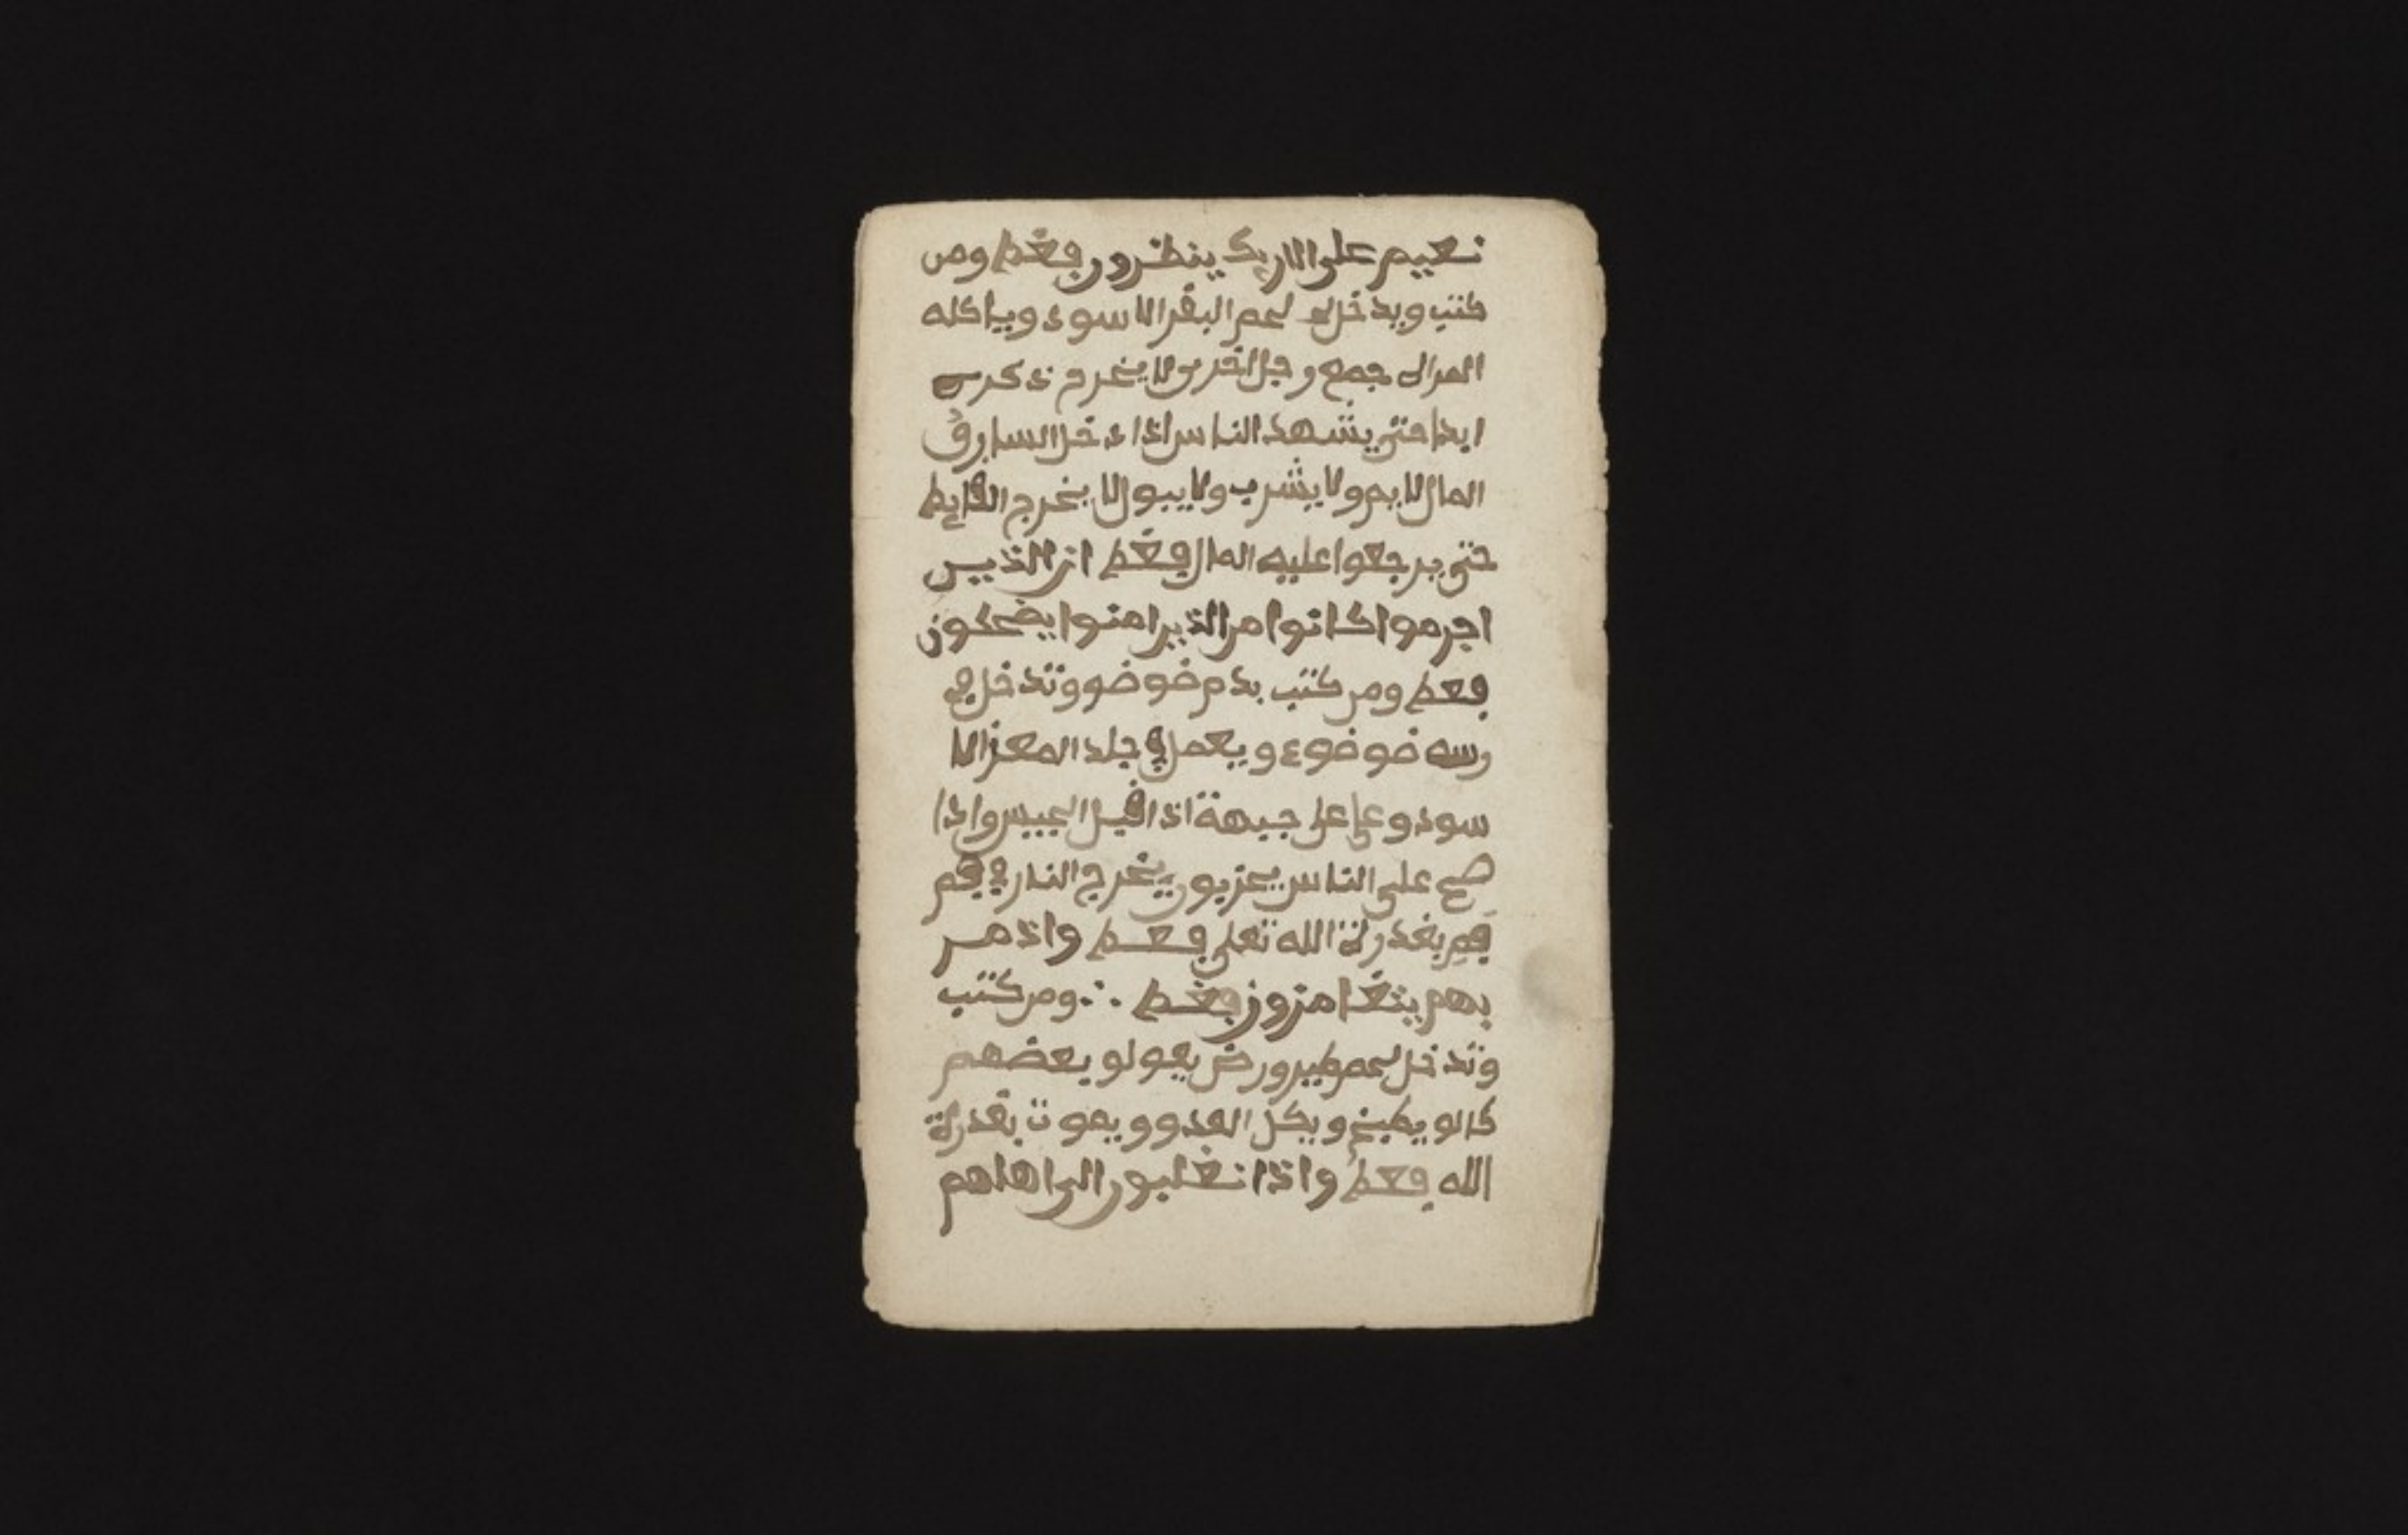 نعيم على الاريك ينظرون فغط ومن
كتب ويدخل لحم البقر الاسود وياكله
المرال جمع رجل اخرى لا يخرج ذكرى
ابدا حتى يشهد الناس اذا دخل السارق
المال لا ينم ولا يشرب ولا يبول لا يخرج الغايط
حتى يرجعوا عليه المال فغط ان الذين
اجرموا كانوا من الذين امنوا يضحكون
فعط ومن كتب بدم ضوضو وتدخل في
رسه ضوضوع ويعمل في جلد المعز الا
سود و على جبهة اذا قيل الجيس واذا
صح على الناس يحزبون يخرج النار في فم
فم بغدرة الله تعلى فعط واذ مر
بهم يتغامزون فغط ∴ ومن كتب
وتدخل لحم طير و يقولو بعضهم
كالو يطبخ ويكل العدو ويموت بقدرة
الله فعط واذا نغلبون الى اهلهم